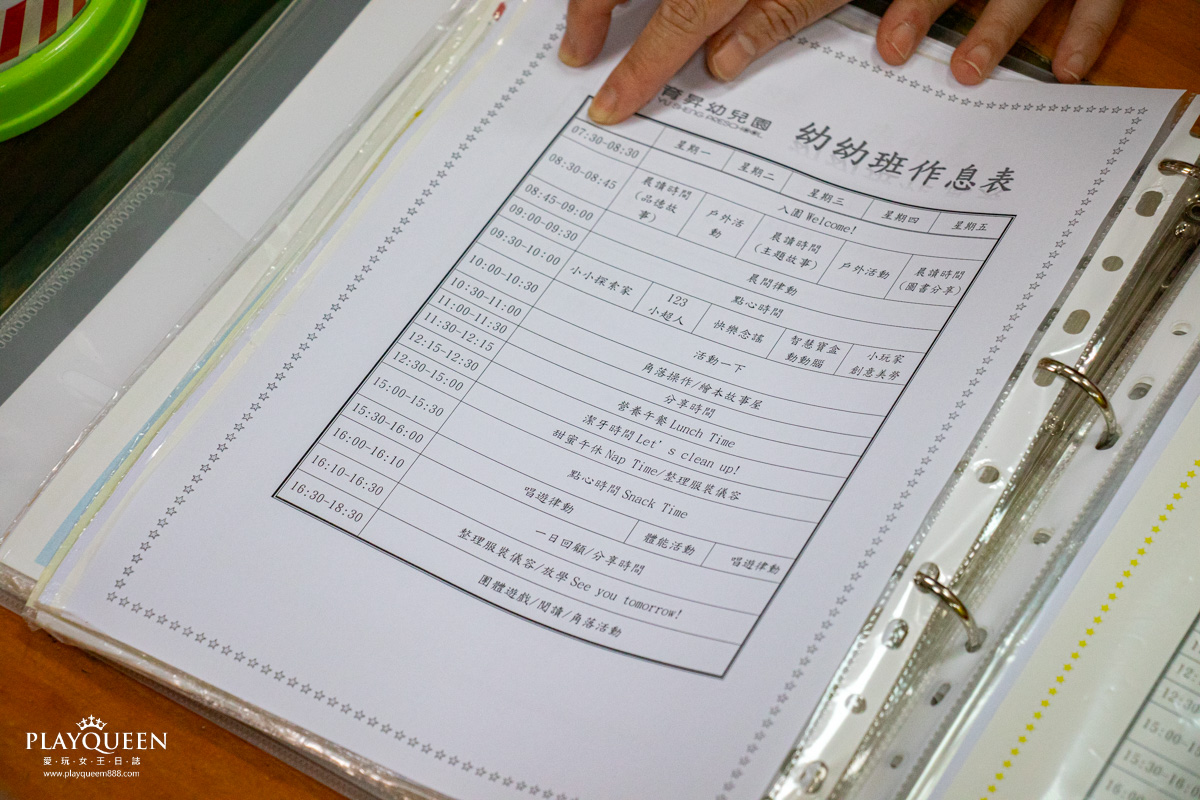 育昇幼兒園
YU SHENG PRESCHOOL
幼幼班作息表
星期一 星期二 星期三 星期四 星期五
07:30-08:30 入園Welcome!
08:30-08:45 晨讀時間(品德故事) 戶外活動 晨讀時間(主題故事) 戶外活動 晨讀時間(圖書分享)
08:45-09:00 晨間律動
09:00-09:30 點心時間
09:30-10:00 小小探索家 123小超人 快樂念謠 智慧寶盒動動腦 小玩家創意美勞
10:00-10:30 活動一下
10:30-11:00 角落操作/繪本故事屋
11:00-11:30 分享時間
11:30-12:15 營養午餐Lunch Time
12:15-12:30 潔牙時間Let's clean up!
12:30-15:00 甜蜜午休Nap Time/整理服裝儀容
15:00-15:30 點心時間Snack Time
15:30-16:00 唱遊律動 體能活動 唱遊律動
16:00-16:10 一日回顧/分享時間
16:10-16:30 整理服裝儀容/放學See you tomorrow!
16:30-18:30 團體遊戲/閱讀/角落活動
15:00-1
15:30-16
16:00-
PLAYQUEEN
愛·玩·女·王·日·誌
www.playqueem888.com